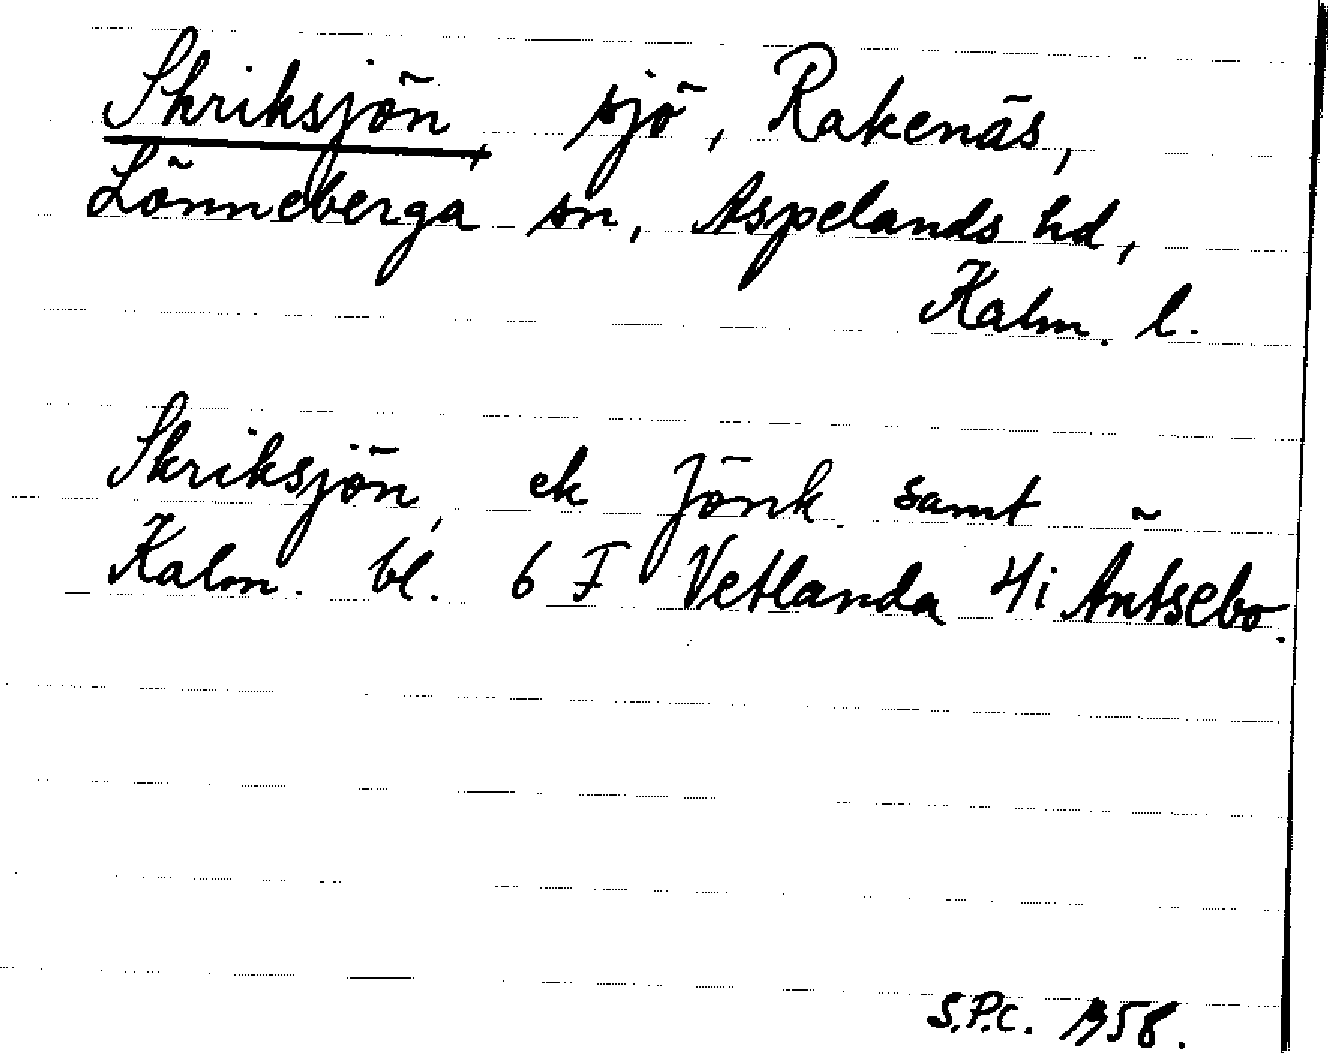 Skriksjön, sjö, Rakenäs,
Lönneberga sn, Aspelands hd,
Kalm. l.
Skriksjön, ek Jönk. samt
Kalm. bl. 6 F Vetlanda 4i Antsebo.
S.P.C. 1958.